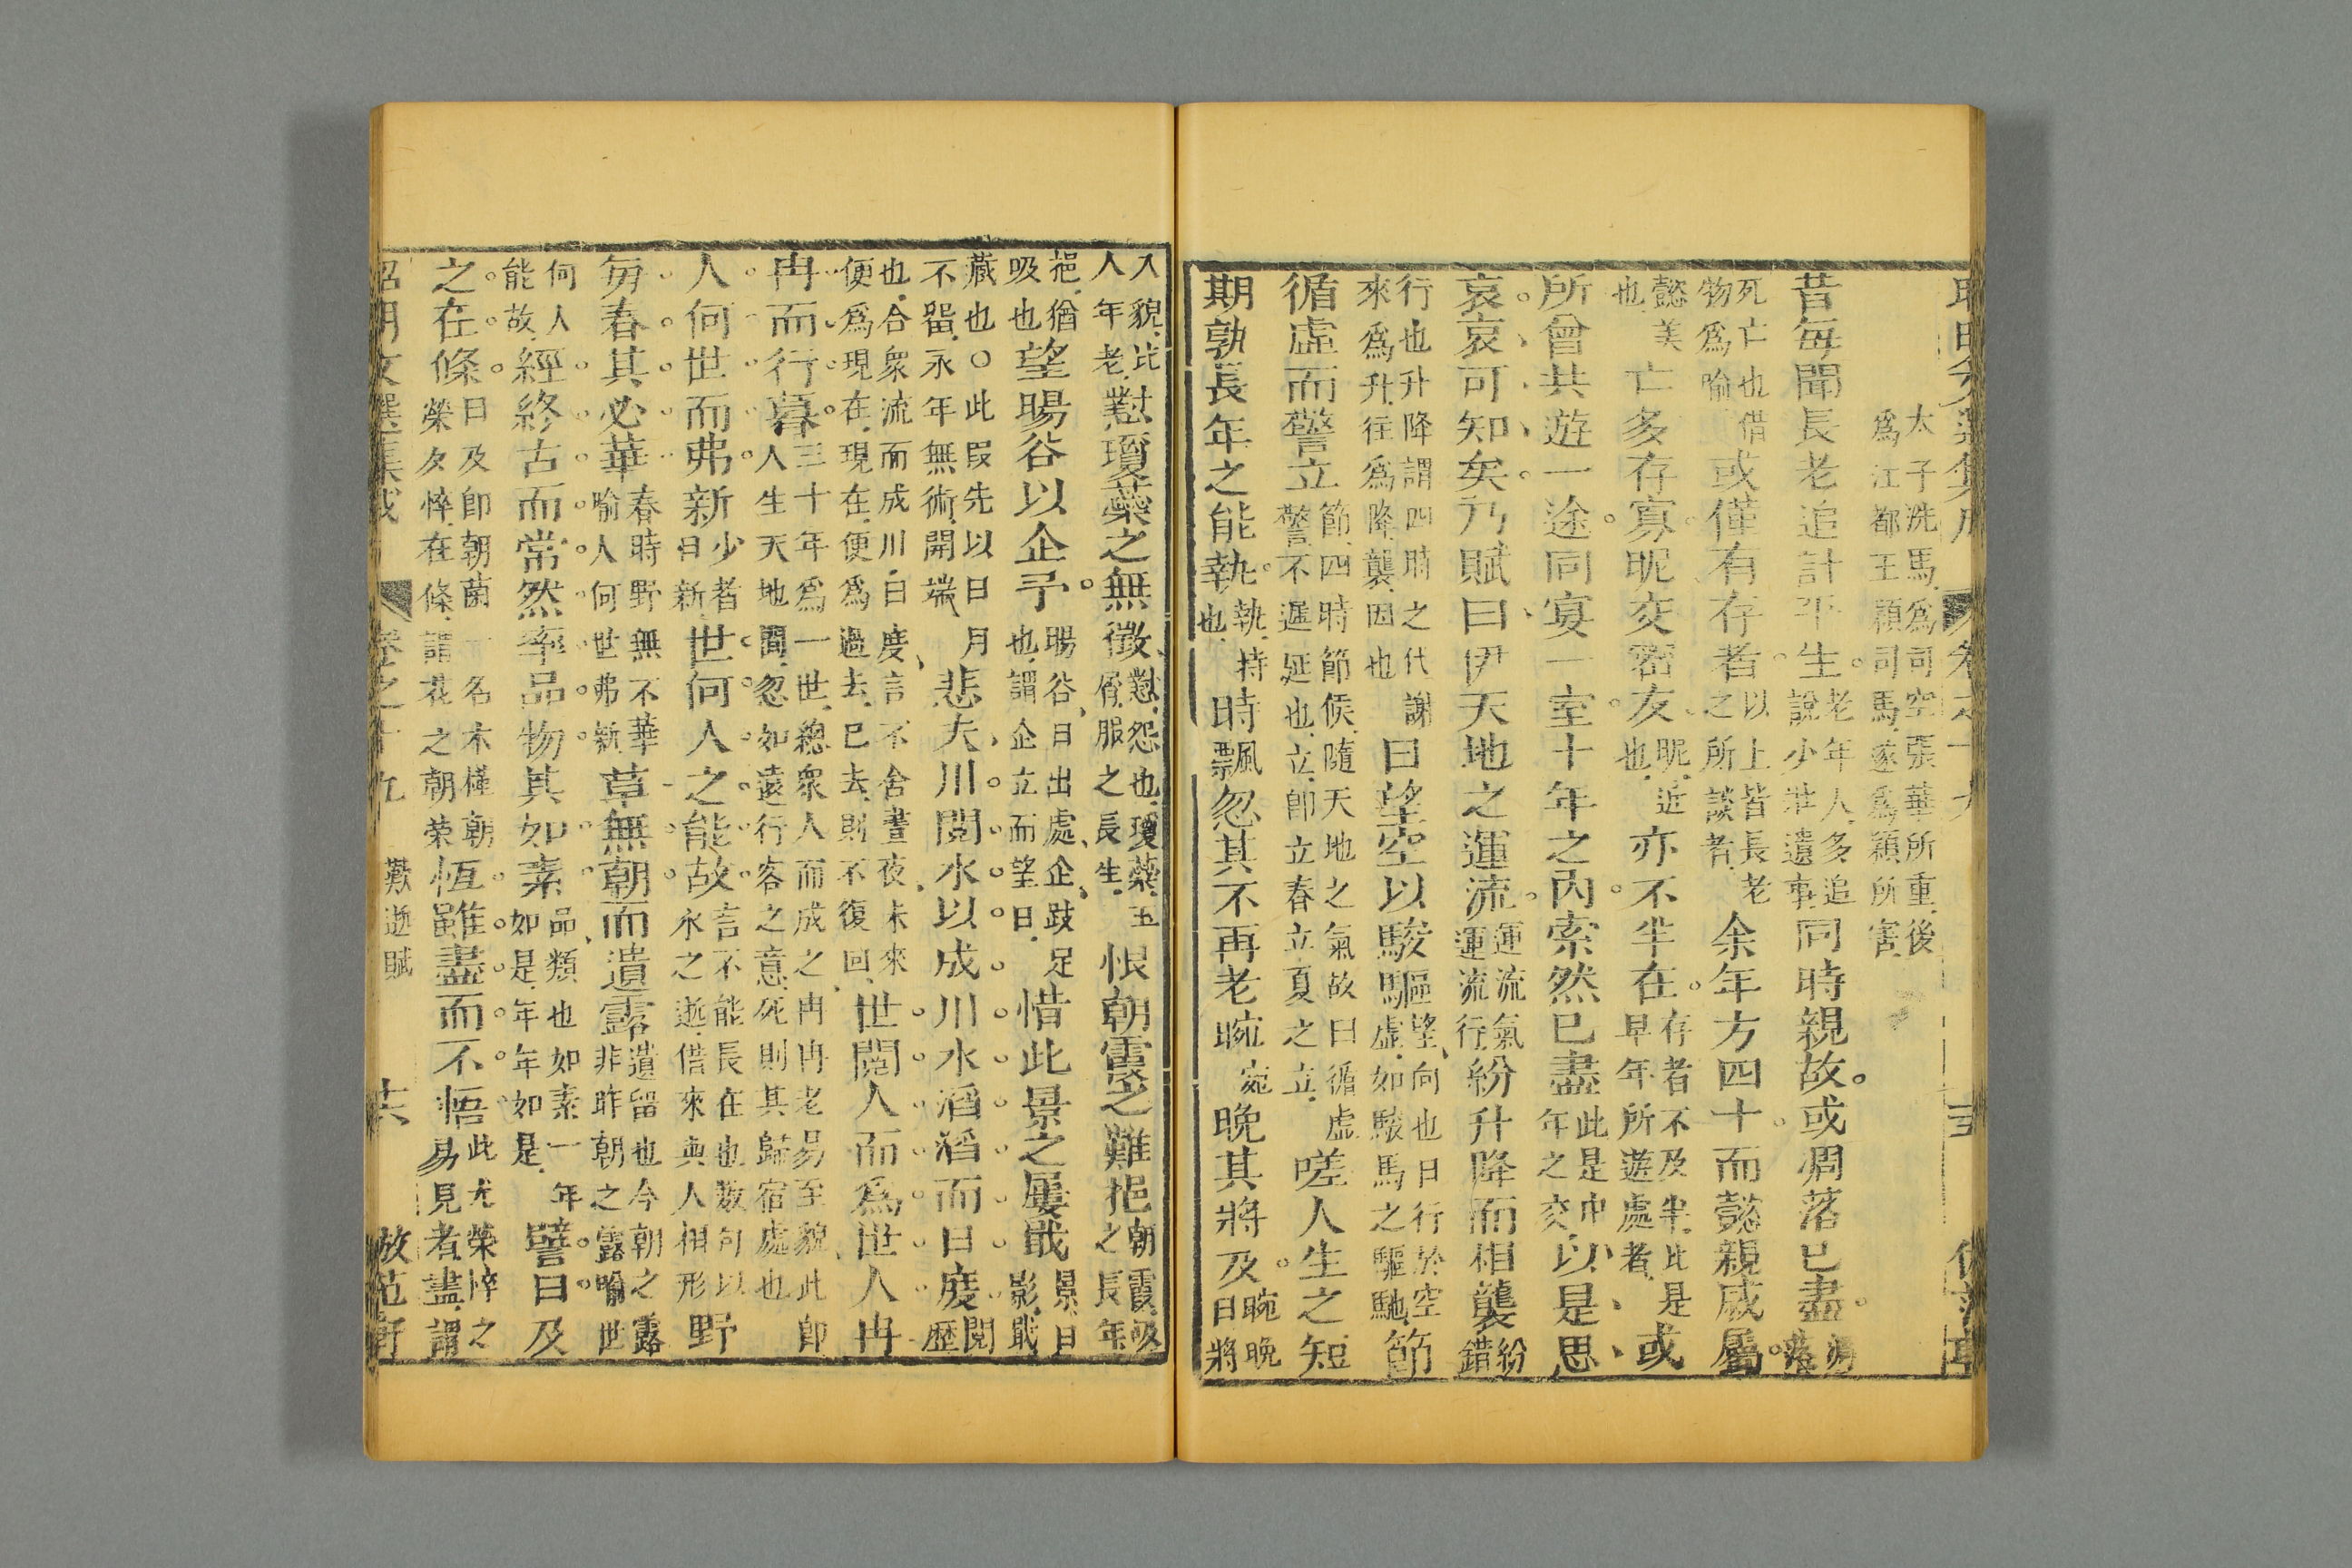 太子洗馬爲司空張華所重後
爲江都王穎司馬遂爲穎所害
昔每聞長老追計平生老年人多追說少壯遺事同時親故或凋落已盡凋落
死亡也借物爲喻或僅有存者以上皆長老之所談者余年方四十而懿親戚屬
懿美也亡多存寡昵交密友昵近也亦不半在存者不及半比是早年所遊處者或
所曾共遊一途同宴一室十年之內索然已盡此是中年之交以是思
哀哀可知矣乃賦曰伊天地之運流運流氣運流行紛升降而相襲紛錯
行也升降謂四時之代謝來爲升往爲降襲因也日望空以駿驅望向也日行於空虛如駿馬之驅馳節
循虛而警立節四時節候隨天地之氣故曰循虛警不遲延也立卽立春立夏之立嗟人生之知
期孰長年之能執執持也時飄忽其不再老晼晚其將及晼晚日將
入貌比人年老懟瓊蘂之無徵懟怨也瓊蘂玉屑服之長生恨朝霞之難挹朝霞吸之長年
挹猶吸也望暘谷以企予暘谷日出處企跂足也謂企立而望日惜此景之屢戢景日影戢
藏也○此段先以日月不畱永年無術開端悲夫川閱水以成川水滔滔而日度閱歷
也合衆流而成川曰度言不舍晝夜未來便爲現在現在便爲過去已去則不復回世閱人而爲世人冉
冉而行暮三十年爲一世總衆人而成之冉冉老易至貌此卽人生天地間忽如遠行客之意死則其歸宿處也
人何世而弗新少者日新世何人之能故言不能長在也數句以水之逝借來與人相形野
每春其必華春時野無不華喻人何世弗新草無朝而遺露遺留也今朝之露非昨朝之露喻世
何人能故經終古而常然率品物其如素品類也如素一年如是年年如是譬日及
之在條日及卽朝菌一名木槿朝榮夕悴在條謂花之朝榮恆雖盡而不悟此尤榮悴之易見者盡謂
昭明文選集成 卷之十九 歎逝賦 六 倣范軒